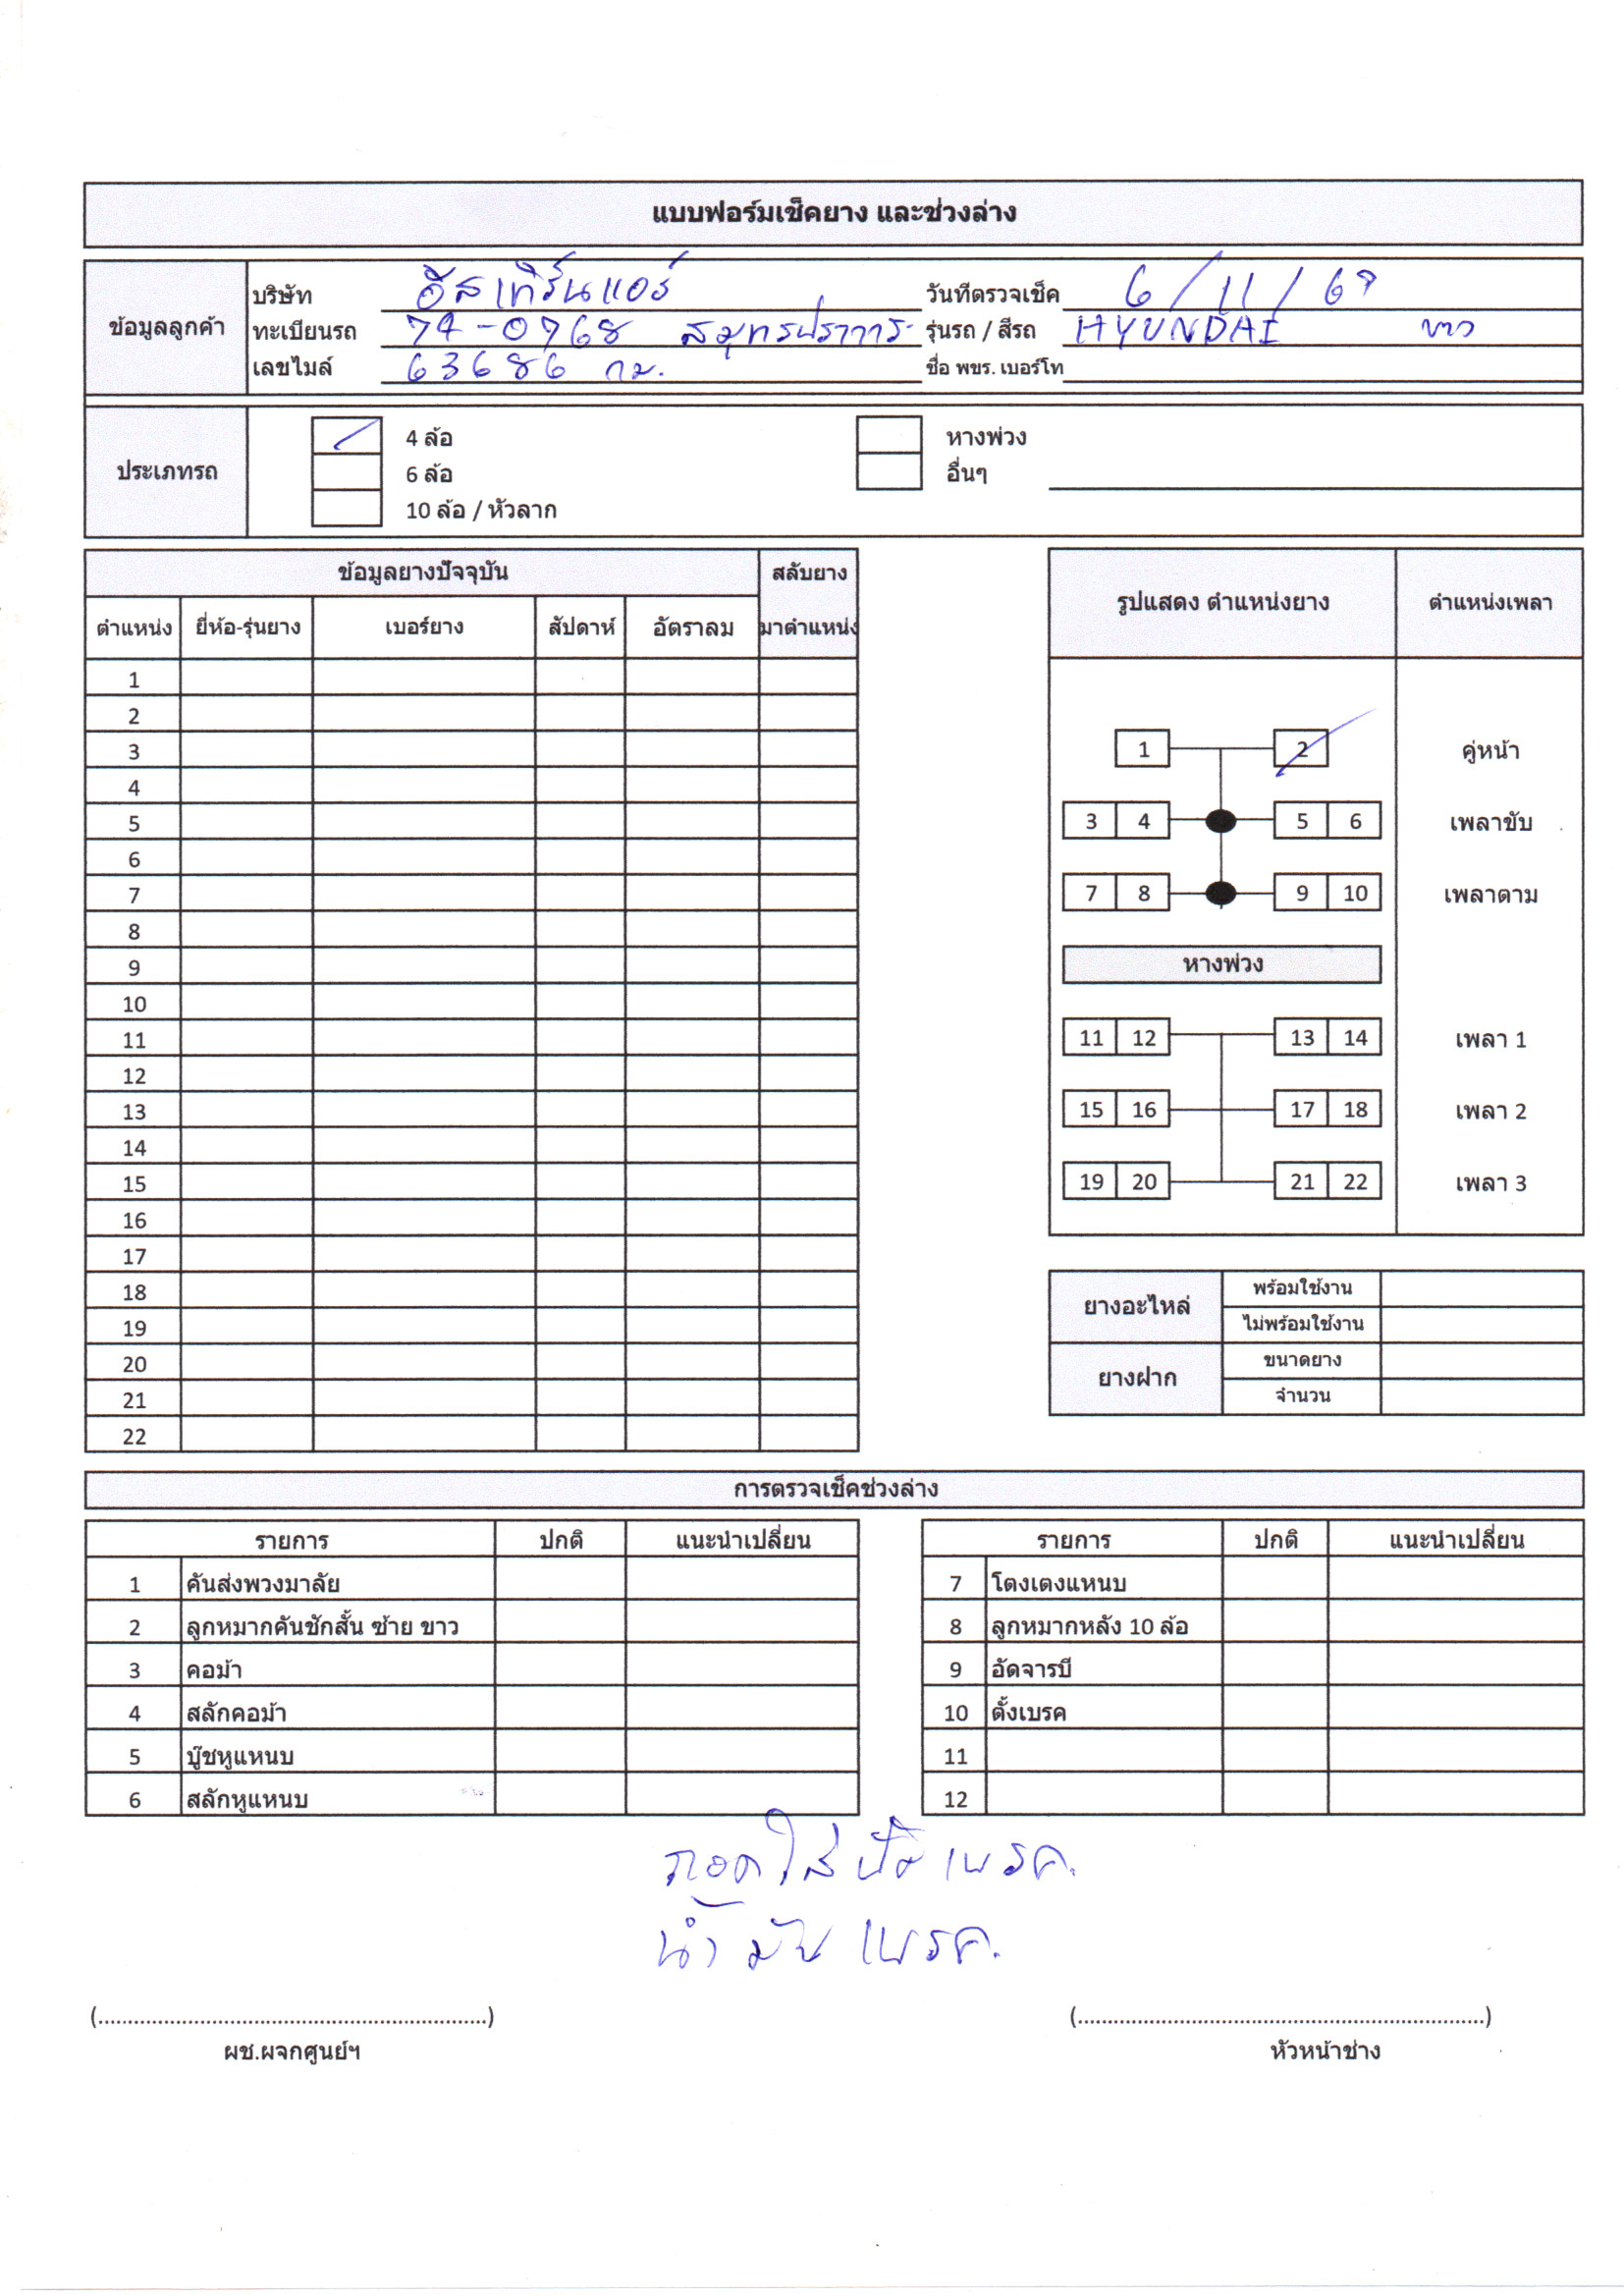 แบบฟอร์มเช็คยาง และช่วงล่าง
ข้อมูลลูกค้า
บริษัท อีสเทิร์นแอร์ วันที่ตรวจเช็ค 6/11/67
ทะเบียนรถ 74-0768 สมุทรปราการ รุ่นรถ / สีรถ HYUNDAI ขาว
เลขไมล์ 63686 กม. ชื่อ พขร. เบอร์โท
ประเภทรถ
4 ล้อ หางพ่วง
6 ล้อ อื่นๆ
10 ล้อ / หัวลาก
ข้อมูลยางปัจจุบัน สลับยาง
ตำแหน่ง ยี่ห้อ-รุ่นยาง เบอร์ยาง สัปดาห์ อัตราลม มาตำแหน่ง
1
2
3
4
5
6
7
8
9
10
11
12
13
14
15
16
17
18
19
20
21
22
รูปแสดง ตำแหน่งยาง ตำแหน่งเพลา
1 2 คู่หน้า
3 4 5 6 เพลาขับ
7 8 9 10 เพลาตาม
หางพ่วง
11 12 13 14 เพลา 1
15 16 17 18 เพลา 2
19 20 21 22 เพลา 3
ยางอะไหล่ พร้อมใช้งาน
ไม่พร้อมใช้งาน
ยางฝาก ขนาดยาง
จำนวน
การตรวจเช็คช่วงล่าง
รายการ ปกติ แนะนำเปลี่ยน
1 คันส่งพวงมาลัย
2 ลูกหมากคันชักสั้น ซ้าย ขาว
3 คอม้า
4 สลักคอม้า
5 บู๊ชหูแหนบ
6 สลักหูแหนบ
รายการ ปกติ แนะนำเปลี่ยน
7 โตงเตงแหนบ
8 ลูกหมากหลัง 10 ล้อ
9 อัดจารบี
10 ตั้งเบรค
11
12
ถอดใส่ปั๊มเบรค.
น้ำมันเบรค.
(..................................................................) (.....................................................................)
ผช.ผจกศูนย์ฯ หัวหน้าช่าง